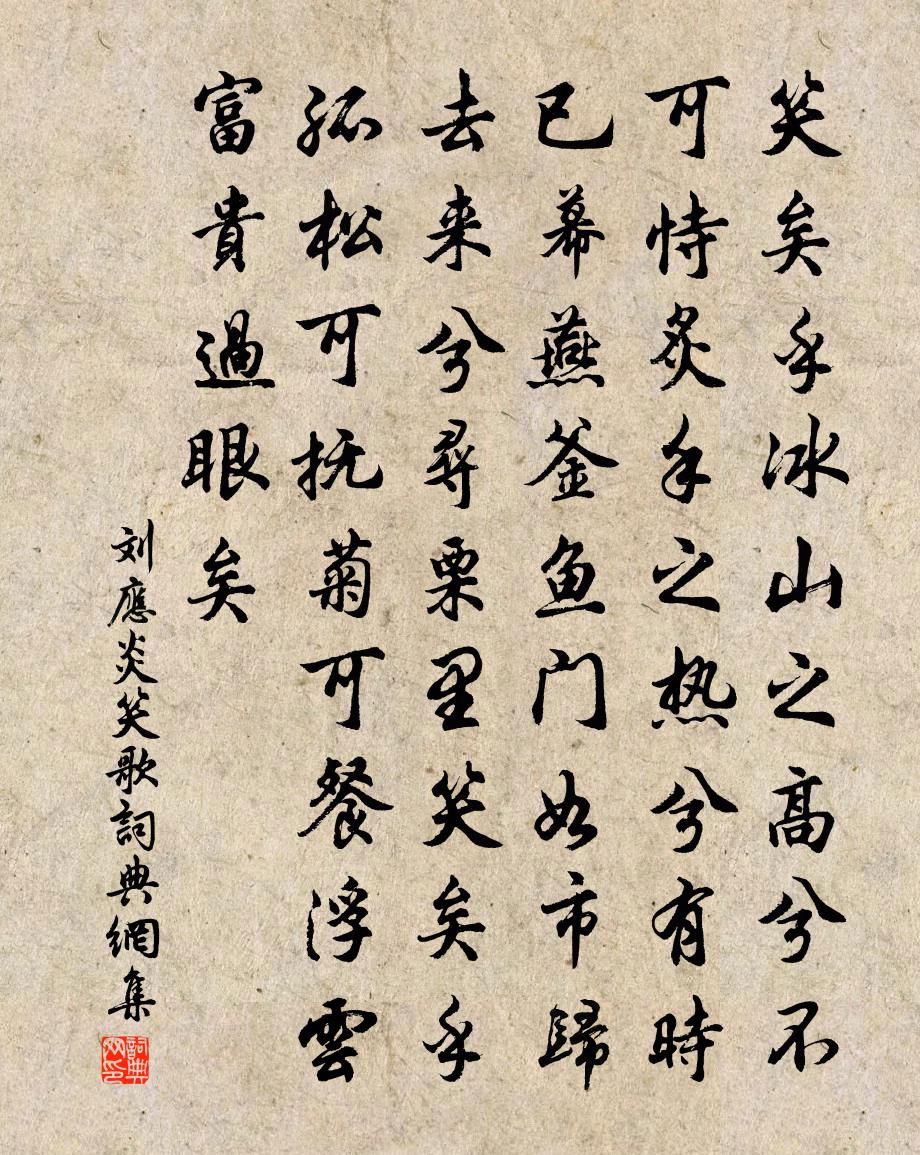 笑矣乎冰山之高兮不
可恃炙手之热兮有時
已幕燕釜鱼门如市歸
去来兮尋栗里笑矣乎
孤松可抚菊可餐浮雲
富貴過眼矣
刘應炎笑歌詞典網集
詞典网印